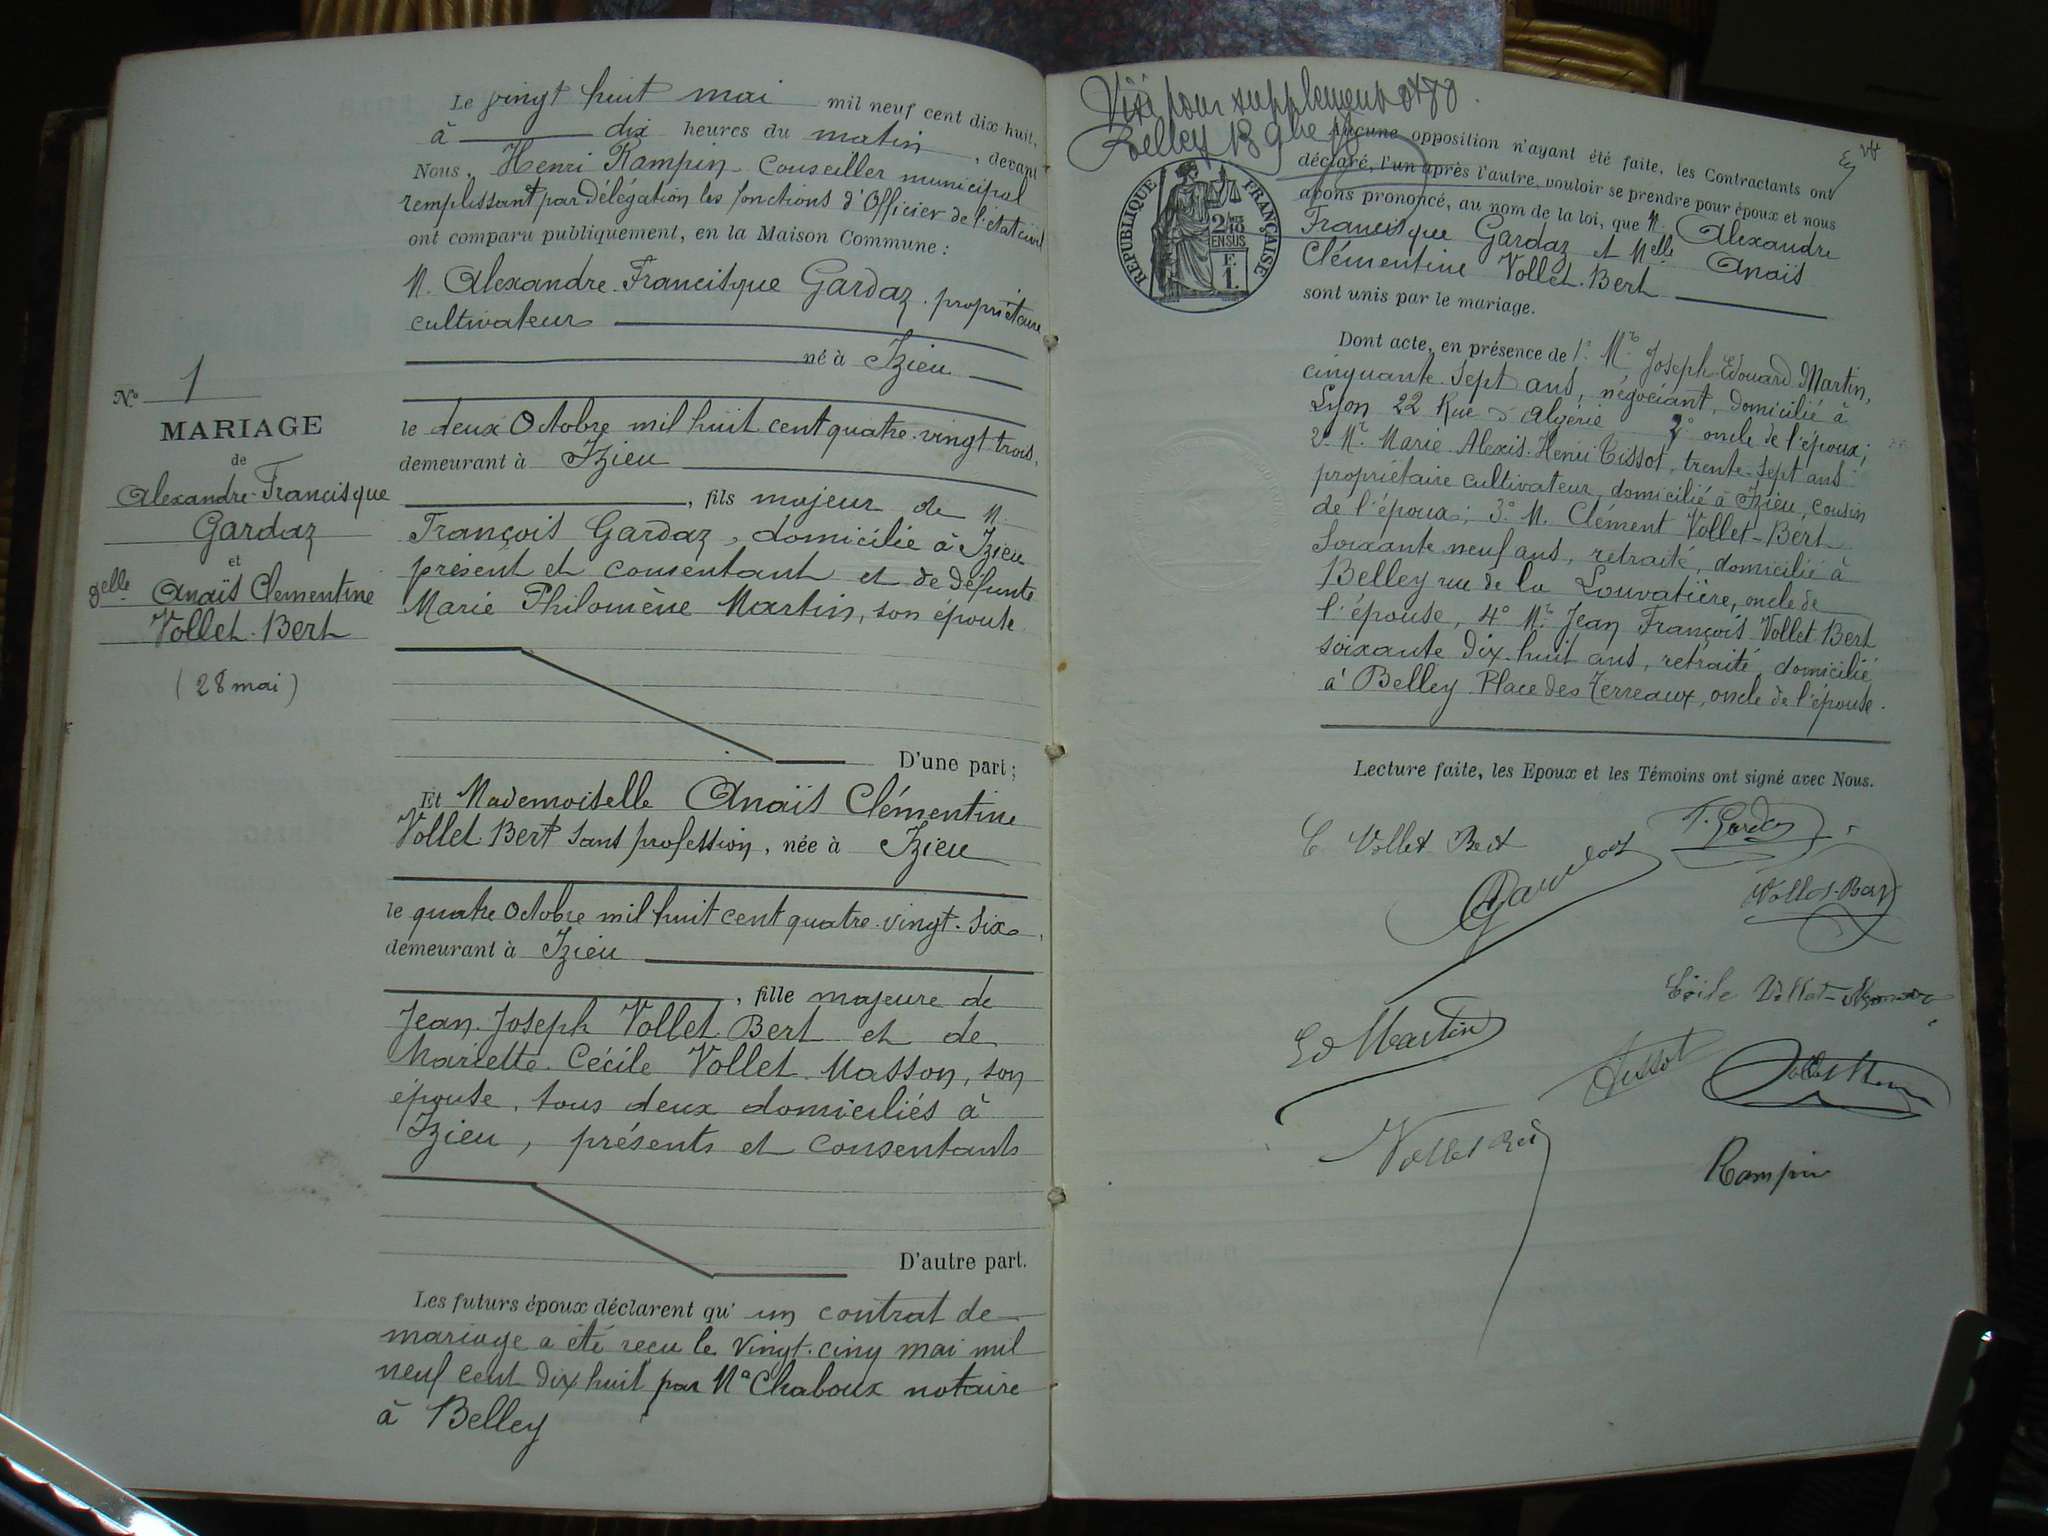 Le vingt huit mai mil neuf cent dix huit,
à dix heures du matin, devant
Nous, Henri Rampin Conseiller municipal
remplissant par délégation les fonctions d'Officier de l'état civil
ont comparu publiquement, en la Maison Commune :
M. Alexandre Francisque Gardaz, propriétaire
cultivateur
né à Izieu
le deux Octobre mil huit cent quatre-vingt trois,
demeurant à Izieu
, fils majeur de M.
François Gardaz, domicilié à Izieu
présent et consentant et de défunte
Marie Philomène Martin, son épouse
D'une part ;
Et Mademoiselle Anaïs Clémentine
Vollet-Bert sans profession, née à Izieu
le quatre Octobre mil huit cent quatre-vingt-six,
demeurant à Izieu
, fille majeure de
Jean-Joseph Vollet-Bert et de
Mariette Cécile Vollet-Masson, son
épouse, tous deux domiciliés à
Izieu, présents et consentants
D'autre part.
Les futurs époux déclarent qu'un contrat de
mariage a été reçu le vingt-cinq mai mil
neuf cent dix huit par Me Chaboux notaire
à Belley
N° 1
MARIAGE
de
Alexandre-Francisque
Gardaz
et
Anaïs Clementine
Vollet-Bert
(28 mai)
Visé pour supplément
Belley 13 9bre
RÉPUBLIQUE FRANÇAISE
2/10
EN SUS
F.
1.
Aucune opposition n'ayant été faite, les Contractants ont
déclaré, l'un après l'autre, vouloir se prendre pour époux et nous
avons prononcé, au nom de la loi, que M. Alexandre
Francisque Gardaz et Melle Anaïs
Clémentine Vollet-Bert
sont unis par le mariage.
Dont acte, en présence de 1° Mr Joseph-Edouard Martin,
cinquante-sept ans, négociant, domicilié à
Lyon 22 Rue d'Algérie oncle de l'époux ;
2° Mr Marie-Alexis-Henri Tissot, trente-sept ans
propriétaire cultivateur, domicilié à Izieu, cousin
de l'époux ; 3° M. Clément Vollet-Bert
soixante neuf ans, retraité, domicilié à
Belley rue de la Louvatière, oncle de
l'épouse, 4° Mr Jean François Vollet-Bert
soixante dix-huit ans, retraité, domicilié
à Belley Place des Terreaux, oncle de l'épouse.
Lecture faite, les Epoux et les Témoins ont signé avec Nous.
C Vollet Bert
F. Gardaz
A Gardaz
Vollet-Bert
Ed Martin
Tissot
Rampin